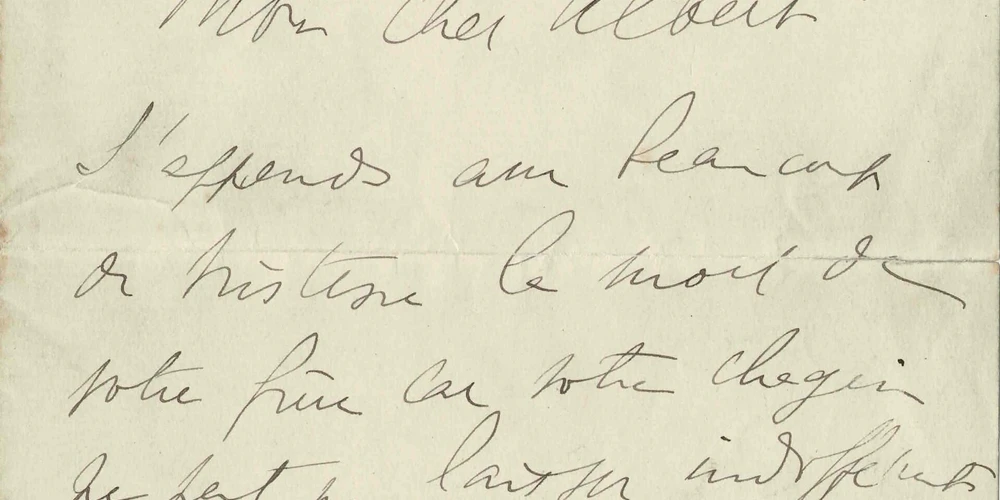 Mon cher Albert
J'apprends avec beaucoup
de tristesse la mort de
votre frère car votre chagrin
ne peut laisser indifférents